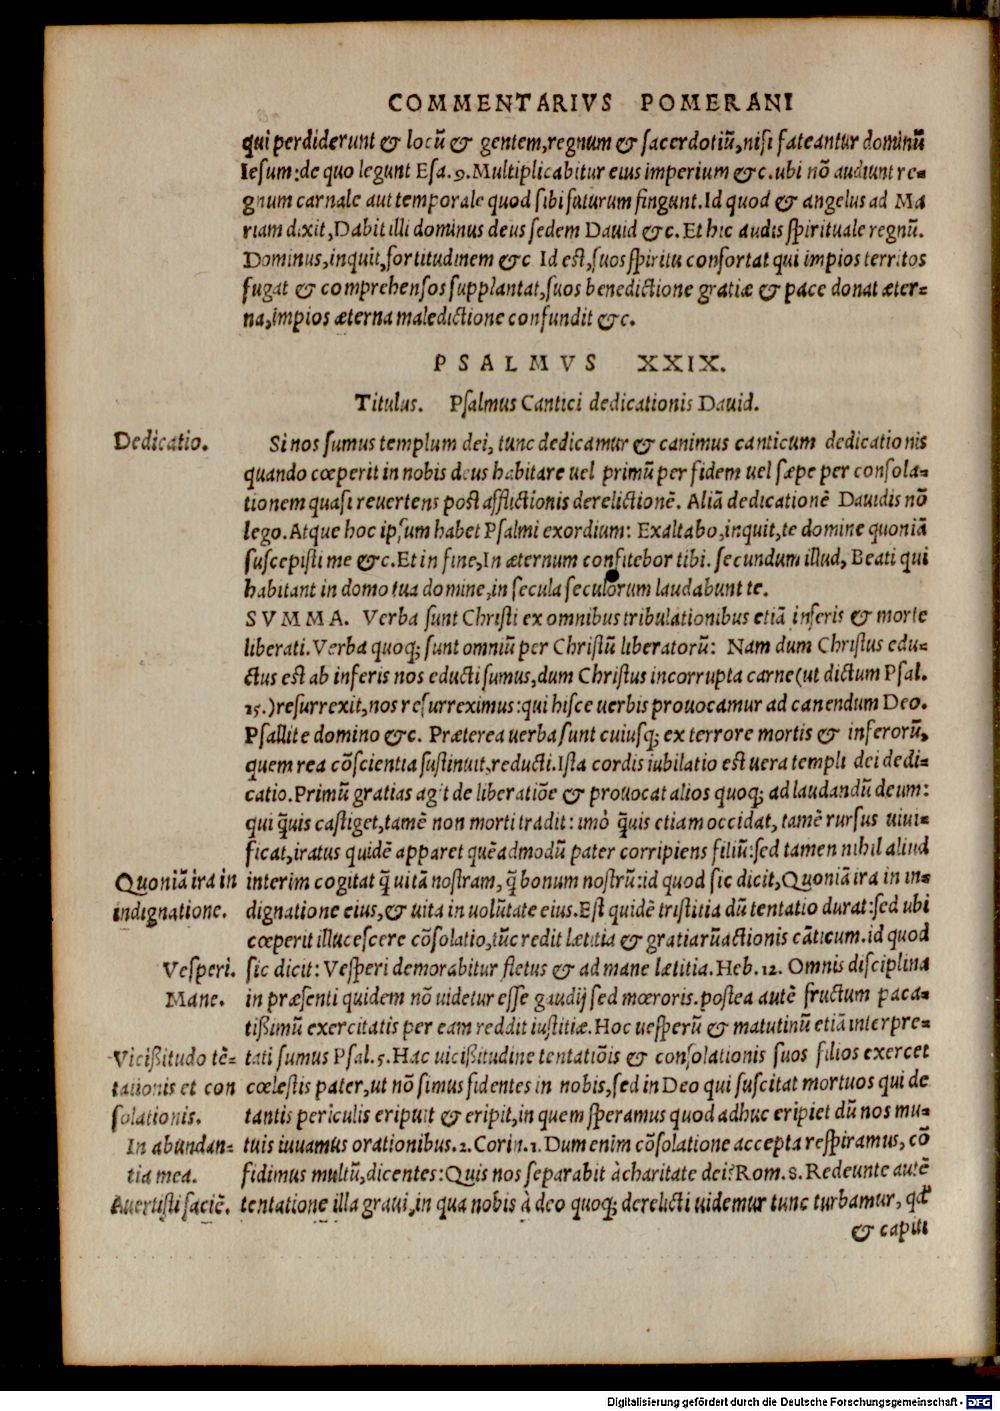 COMMENTARIVS POMERANI
qui perdiderunt & locū & gentem, regnum & sacerdotiū, nisi fateantur dominū
Iesum: de quo legunt Esa. 9. Multiplicabitur eius imperium &c. ubi nō audiunt re=
gnum carnale aut temporale quod sibi futurum fingunt. Id quod & angelus ad Ma
riam dixit, Dabit illi dominus deus sedem Dauid &c. Et hic audis spirituale regnū.
Dominus, inquit, fortitudinem &c Id est, suos spiritu confortat qui impios territos
fugat & comprehensos supplantat, suos benedictione gratiæ & pace donat æter=
na, impios æterna maledictione confundit &c.
PSALMVS XXIX.
Titulus. Psalmus Cantici dedicationis Dauid.
Dedicatio. Si nos sumus templum dei, tunc dedicamur & canimus canticum dedicationis
quando cœperit in nobis deus habitare uel primū per fidem uel sæpe per consola=
tionem quasi reuertens post afflictionis derelictionē. Aliā dedicationē Dauidis nō
lego. Atque hoc ipsum habet Psalmi exordium: Exaltabo, inquit, te domine quoniā
suscepisti me &c. Et in fine, In æternum confitebor tibi. secundum illud, Beati qui
habitant in domo tua domine, in secula seculorum laudabunt te.
SVMMA. Verba sunt Christi ex omnibus tribulationibus etiā inferis & morte
liberati. Verba quoq; sunt omniū per Christū liberatorū: Nam dum Christus edu=
ctus est ab inferis nos educti sumus, dum Christus incorrupta carne (ut dictum Psal.
15.) resurrexit, nos resurreximus: qui hisce uerbis prouocamur ad canendum Deo.
Psallite domino &c. Præterea uerba sunt cuiusq; ex terrore mortis & inferorū,
quem rea cōscientia sustinuit, reducti. Ista cordis iubilatio est uera templi dei dedi=
catio. Primū gratias agit de liberatiōe & prouocat alios quoq; ad laudandū deum:
qui q̄uis castiget, tamē non morti tradit: imò q̄uis etiam occidat, tamē rursus uiui=
ficat, iratus quidē apparet quēadmodū pater corripiens filiū: sed tamen nihil aliud
Quoniā ira in interim cogitat q̄ uitā nostram, q̄ bonum nostrū: id quod sic dicit, Quoniā ira in in=
indignatione. dignatione eius, & uita in uolūtate eius. Est quidē tristitia dū tentatio durat: sed ubi
cœperit illucescere cōsolatio, tūc redit lætitia & gratiarūactionis cāticum. id quod
Vesperi. sic dicit: Vesperi demorabitur fletus & ad mane lætitia. Heb. 12. Omnis disciplina
Mane. in præsenti quidem nō uidetur esse gaudij sed mœroris. postea autē fructum paca=
tißimū exercitatis per eam reddit iustitiæ. Hoc uesperū & matutinū etiā interpre=
Vicißitudo tē= tati sumus Psal. 5. Hac uicißitudine tentatiōis & consolationis suos filios exercet
tationis et con cœlestis pater, ut nō simus fidentes in nobis, sed in Deo qui suscitat mortuos qui de
solationis. tantis periculis eripuit & eripit, in quem speramus quod adhuc eripiet dū nos mu=
In abundan= tuis iuuamus orationibus. 2. Corin. 1. Dum enim cōsolatione accepta respiramus, cō
tia mea. fidimus multū, dicentes: Quis nos separabit à charitate dei? Rom. 8. Redeunte autē
Auertisti faciē. tentatione illa graui, in qua nobis à deo quoq; derelicti uidemur tunc turbamur, qđ
& capiti
Digitalisierung gefördert durch die Deutsche Forschungsgemeinschaft - DFG